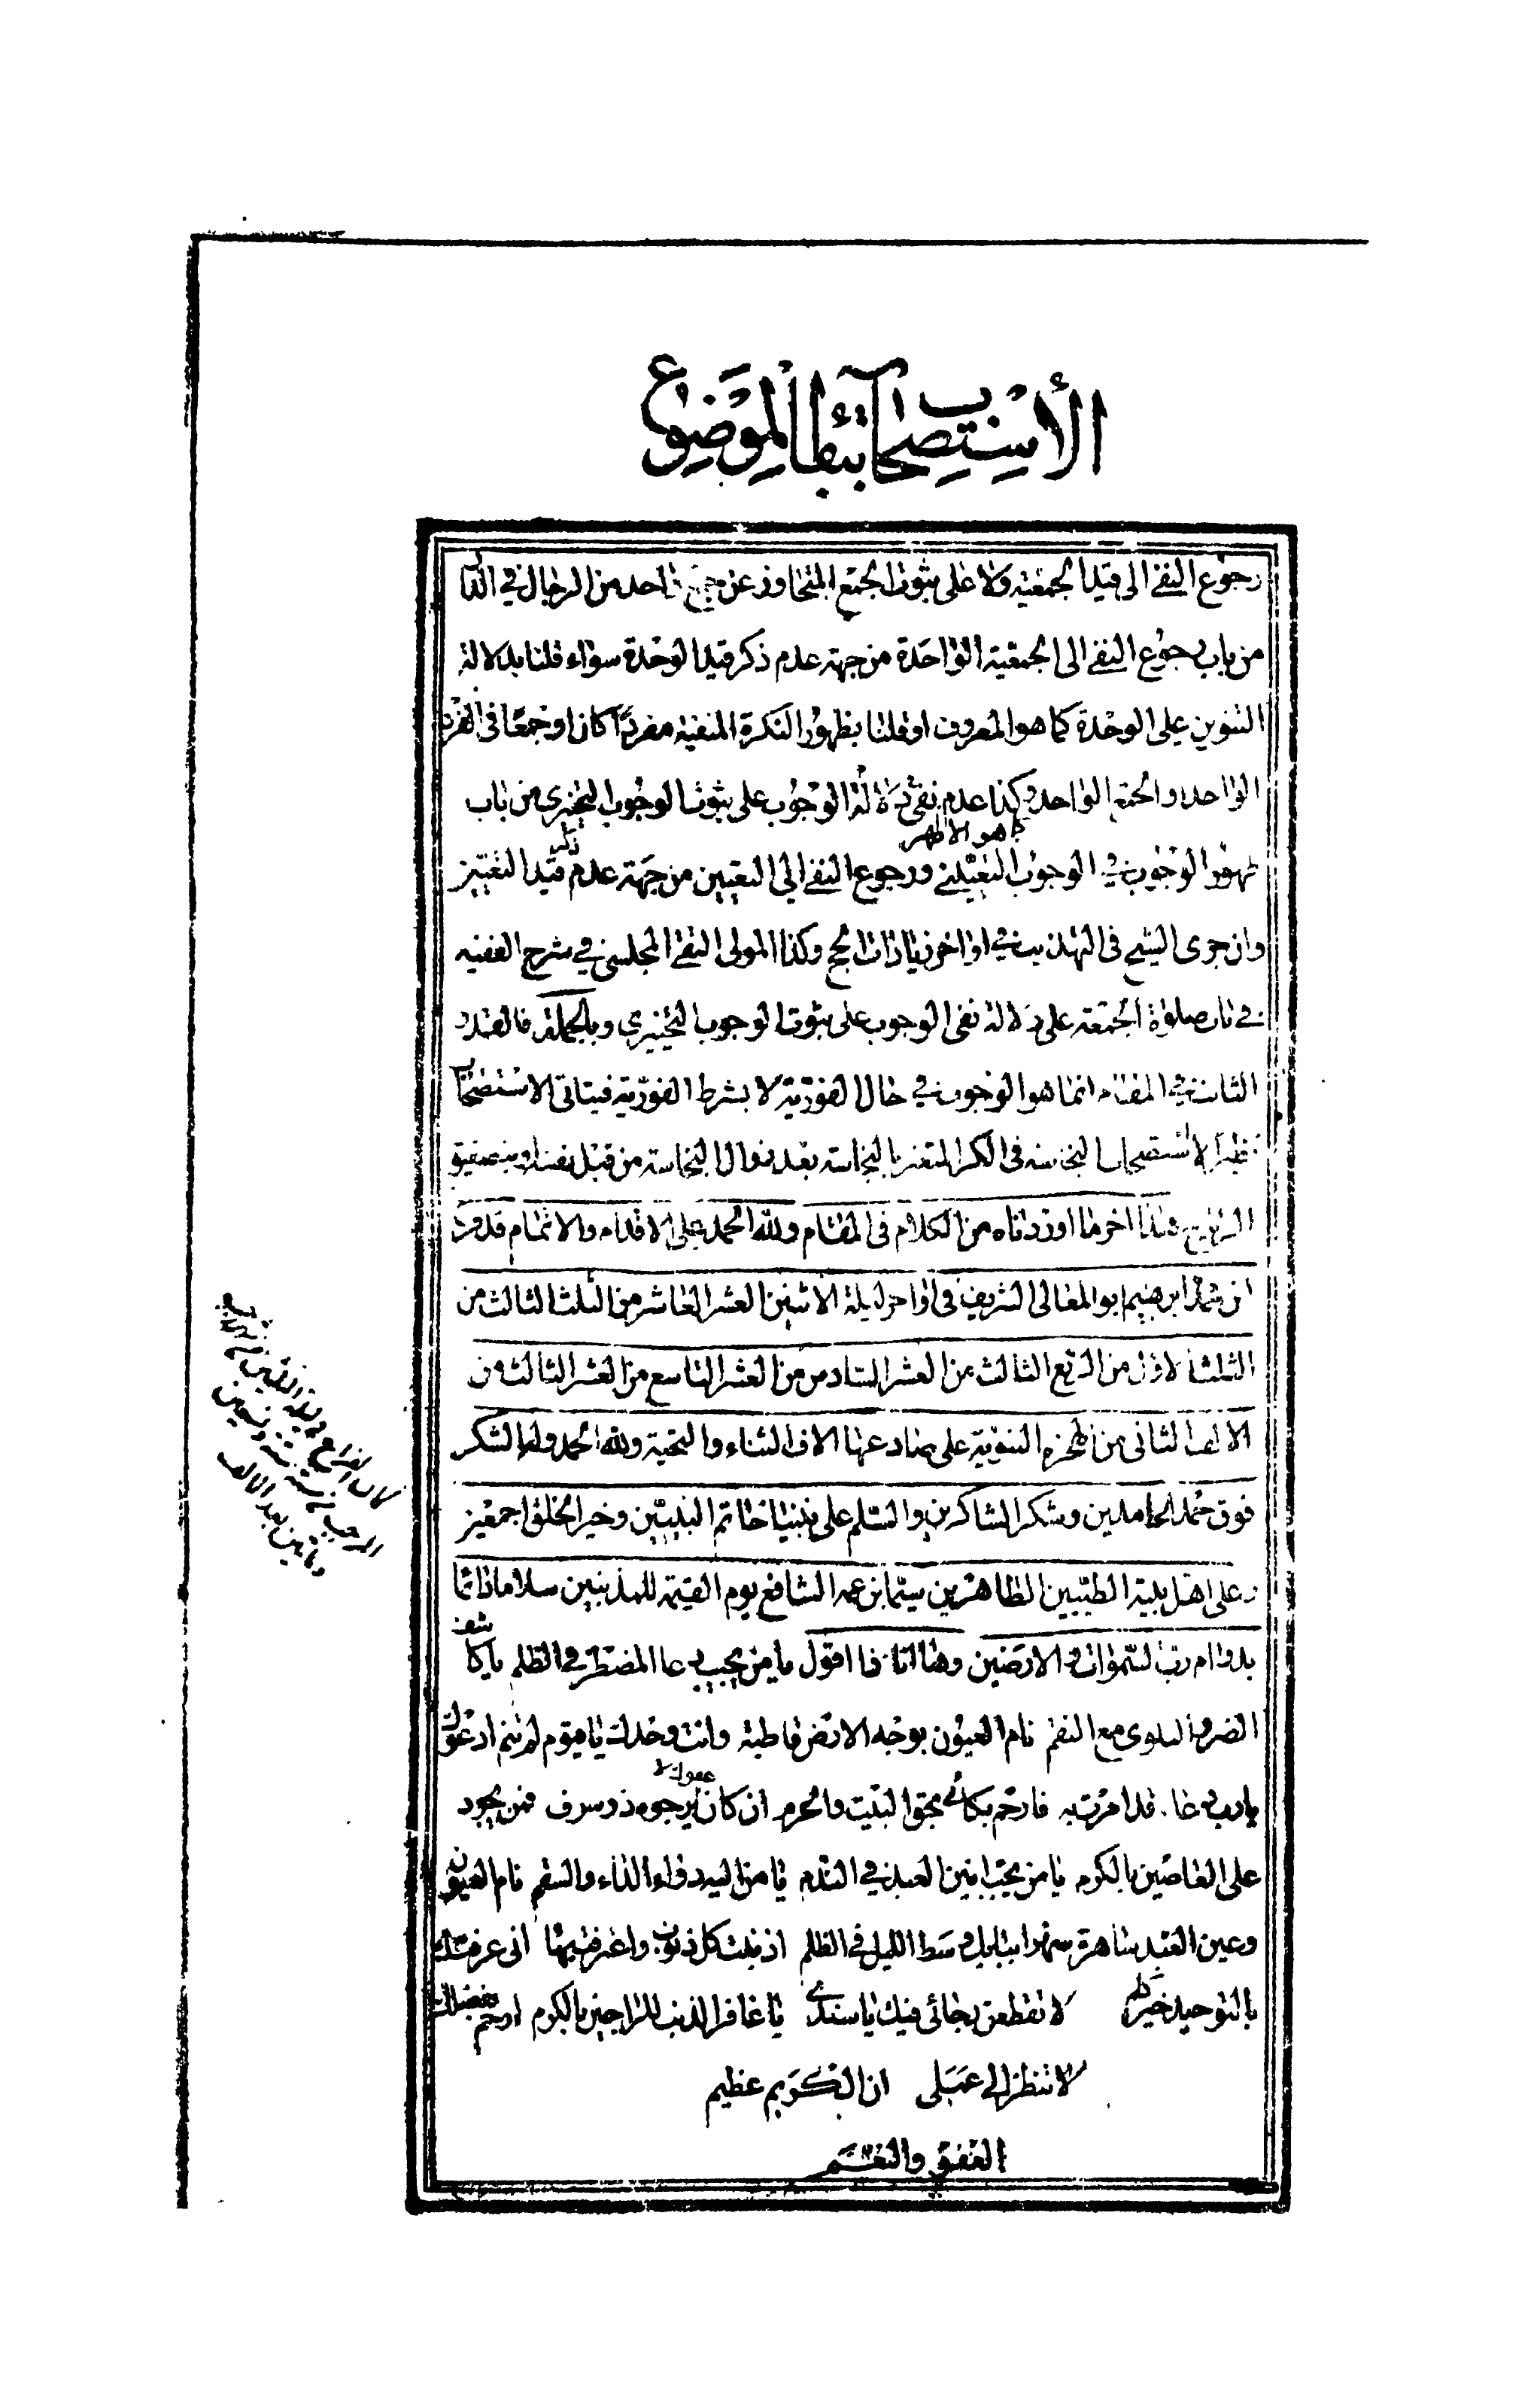 الاستصحاب بقاء الموضوع
رجوع النفى الى قيد الجمعية ولا على ثبوت الجمع المتجاوز عن واحد من الرجال فى الدار
من باب رجوع النفى الى الجمعية الواحدة من جهة عدم ذكر قيد الوحدة سواء قلنا بدلالة
التنوين على الوحدة كما هو المعروف او قلنا بظهور النكرة المنفية مفردًا كان او جمعًا فى الفرد
الواحد او الجمع الواحد وكذا عدم نفى دلالة الوجوب على ثبوت الوجوب التخييرى من باب
كما هو الاظهر
ذكر
ظهور الوجوب فى الوجوب التعيينى ورجوع النفى الى التعيين من جهة عدم قيد التعيين
وان جرى الشيخ فى التهذيب فى اواخر زيادات الحج وكذا المولى التقى المجلسى فى شرح الفقيه
فى باب صلوة الجمعة على دلالة نفى الوجوب على ثبوت الوجوب التخييرى وبالجملة فالقدر
الثابت فى المقام انما هو الوجوب فى حال الفورية لا بشرط الفورية فيتاتى الاستصحاب
نظير الاستصحاب النجاسة فى الكر المتغير بالنجاسة بعد زوال النجاسة من قبل نفسه او بتصفيق
الرياح هذا اخر ما اوردناه من الكلام فى المقام ولله الحمد على الاقدام والاتمام قد فرغ
ابن محمد ابرهيم ابو المعالى الشريف فى اواخر ليلة الاثنين العشر العاشر من الثلث الثالث من
الثلث الاول من الربع الثالث من العشر السادس من العشر التاسع من العشر الثالث من
الالف الثانى من الهجرة النبوية على مهاد عهاد الاف الثناء والتحية ولله الحمد وله الشكر
فوق حمد الحامدين وشكر الشاكرين والسلم على نبينا خاتم النبيين وخير الخلق اجمعين
وعلى اهل بيته الطيبين الطاهرين سيما ابن عمه الشافع يوم القيمة للمذنبين سلاما دائما
بدوام رب السموات والارضين وها انا ذا اقول يا من يجيب دعا المضطر فى الظلم يا كاشف
الضر والبلوى مع السقم نام العيون بوجه الارض قاطبة وانت وحدك يا قيوم لم تنم ادعوك
يا رب دعا قد امرت به فارحم بكائى بحق البيت والحرم ان كان لا يرجوه ذو سرف فمن يجود
عفوك
على العاصين بالكرم يا من يحب انين العبد فى الندم يا من اليه دواء الداء والسقم نام العيون
وعين العبد ساهرة وسط الليل فى الظلم اذنبت كل ذنوب واعترفت بها انى عرفتك
بالتوحيد خير لا تقطعن رجائى فيك يا سندى يا غافر الذنب للراجين بالكرم ارحم بفضلك
لا تنظر الى عملى ان الكريم عظيم
العفو والنعم
كان الفراغ من
الرجب سنة ستة وتسعين
ومائتين بعد الالف